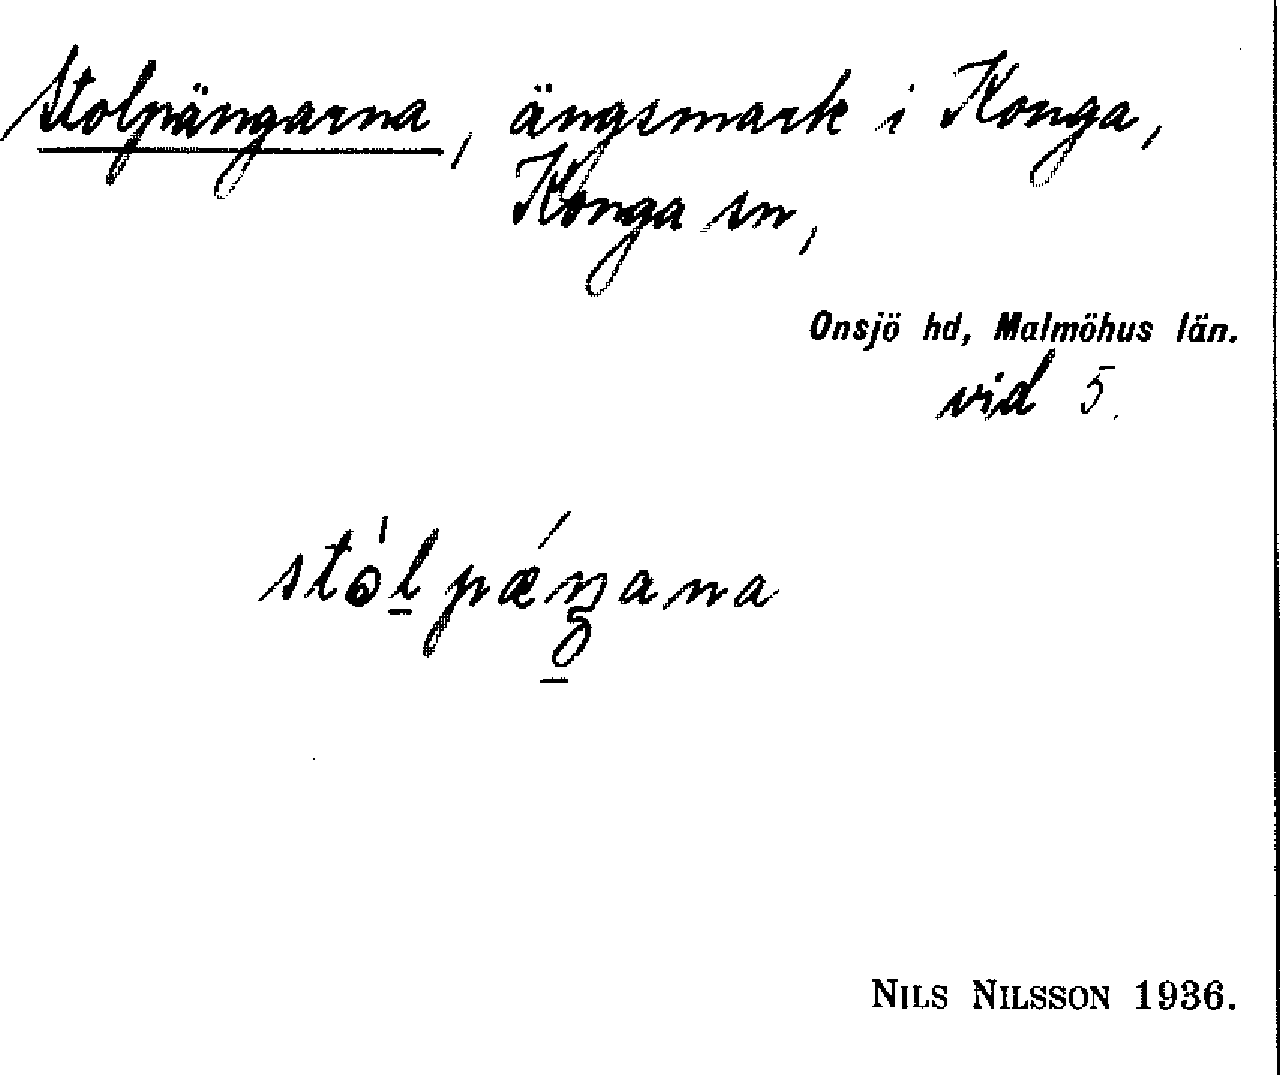 Stolpängarna, ängsmark i Konga,
Konga sn,
Onsjö hd, Malmöhus län.
vid 5.
stòl̲pǽŋ̲ana
NILS NILSSON 1936.